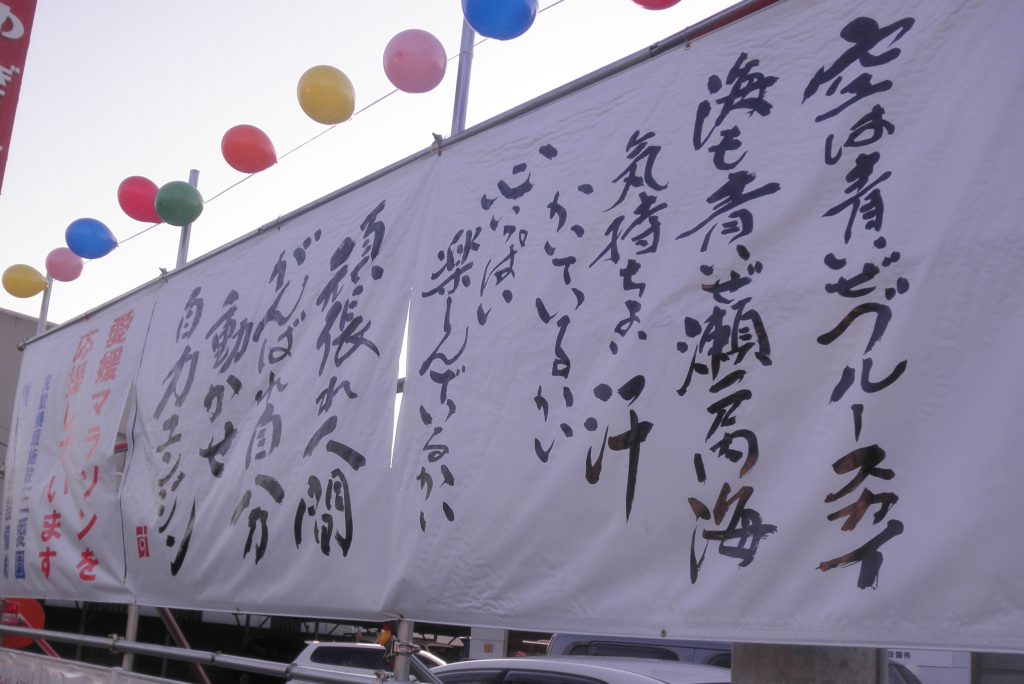 空は青いぜブルースカイ
海も青いぜ瀬戸内海
気持ちよい汗
かいているかい
心いっぱい
楽しんでいるかい
頑張れ人間
がんばれ自分
動かせ
自力エンジン
愛媛マラソンを
応援しています
三愛園